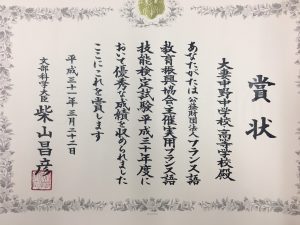 賞状
大妻中野中学校・高等学校殿
あなたがたは公益財団法人フランス語
教育振興協会主催実用フランス語
技能検定試験平成三十年度に
おいて優秀な成績を収められました
ここにこれを賞します
平成三十一年三月二十二日
文部科学大臣 柴山昌彦